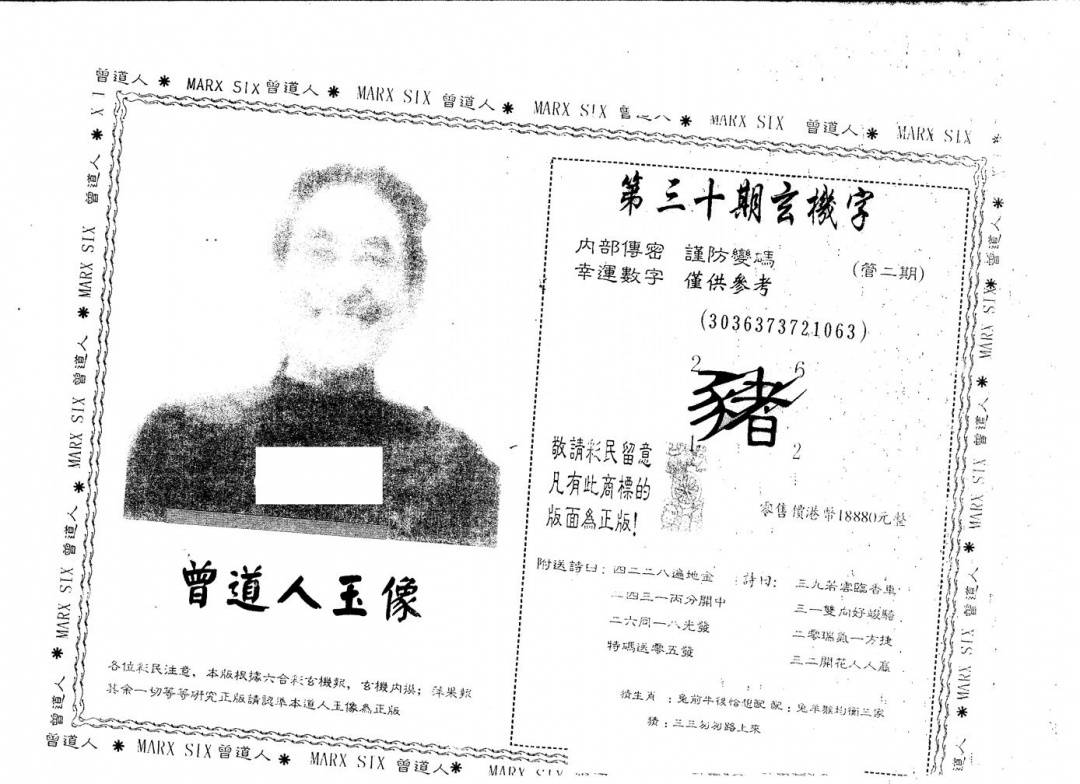 曾道人 * MARX SIX 曾道人 * MARX SIX 曾道人 * MARX SIX 曾道人 * MARX SIX 曾道人 * MARX SIX
第三十期玄機字
内部傳密 謹防變碼
幸運數字 僅供參考
(管二期)
(3036373721063)
2 6
豬
1 2
敬請彩民留意
凡有此商標的
版面為正版!
零售價港幣18880元整
附送詩曰:四二二八遍地金
二四三一丙分開中
二六同一八光發
特碼送零五發
詩曰:三九若雲臨香車
三一雙向好峻騎
二零瑞氣一方捷
三二開花人人
猜生肖:兔前牛後恰恨配 配:兔羊猴均衡三家
猜:三三匆匆路上來
曾道人玉像
各位彩民注意,本版根據六合彩玄機報,玄機内撰;蘋果報
其余一切等等研究正版請認準本道人玉像為正版
曾道人 * MARX SIX 曾道人 * MARX SIX 曾道人 * MARX SIX
曾道人 * MARX SIX 曾道人 * MARX SIX 曾道人 * MARX SIX 曾道人
曾道人 * MARX SIX 曾道人 * MARX SIX 曾道人 * MARX SIX